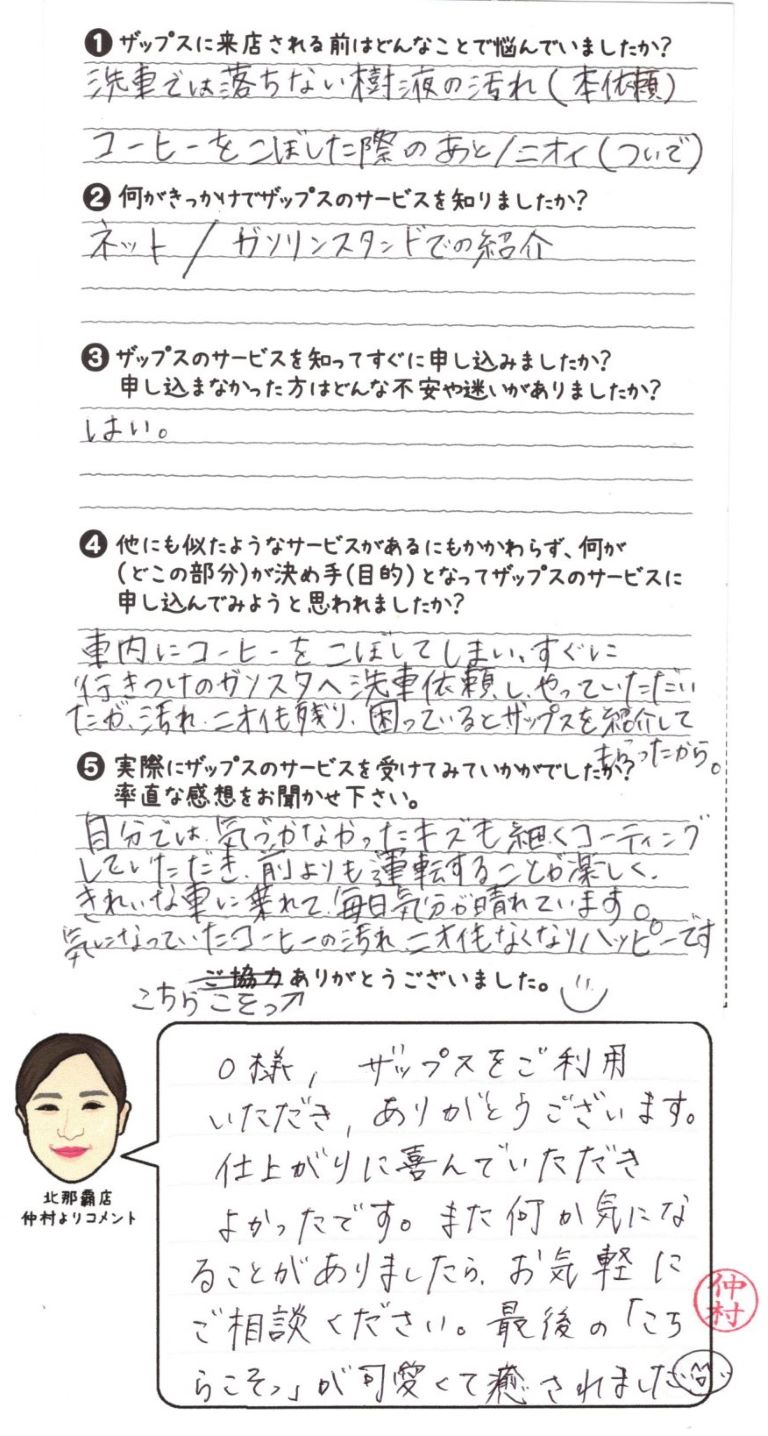 ❶ザップスに来店される前はどんなことで悩んでいましたか?
洗車では落ちない樹液の汚れ(本依頼)
コーヒーをこぼした際のあと/ニオイ(ついで)
❷何がきっかけでザップスのサービスを知りましたか?
ネット/ガソリンスタンドでの紹介
❸ザップスのサービスを知ってすぐに申し込みましたか?
申し込まなかった方はどんな不安や迷いがありましたか?
はい。
❹他にも似たようなサービスがあるにもかかわらず、何が
(どこの部分)が決め手(目的)となってザップスのサービスに
申し込んでみようと思われましたか?
車内にコーヒーをこぼしてしまい、すぐに
行きつけのガソスタへ洗車依頼し、やっていただい
たが、汚れ、ニオイも残り、困っているとザップスを紹介して
もらったから。
❺実際にザップスのサービスを受けてみていかがでしたか?
率直な感想をお聞かせ下さい。
自分では気づかなかったキズも細くコーティング
していただき、前よりも運転することが楽しく、
きれいな車に乗れて、毎日気分が晴れています。
気になっていたコーヒーの汚れ、ニオイもなくなりハッピーです
ご協力ありがとうございました。
こちらこそっ
O様, ザップスをご利用
いただき, ありがとうございます。
仕上がりに喜んでいただき
よかったです。また何か気にな
ることがありましたら、お気軽に
ご相談ください。最後の「こち
らこそっ」が可愛くて癒されました
北那覇店
仲村よりコメント
仲村